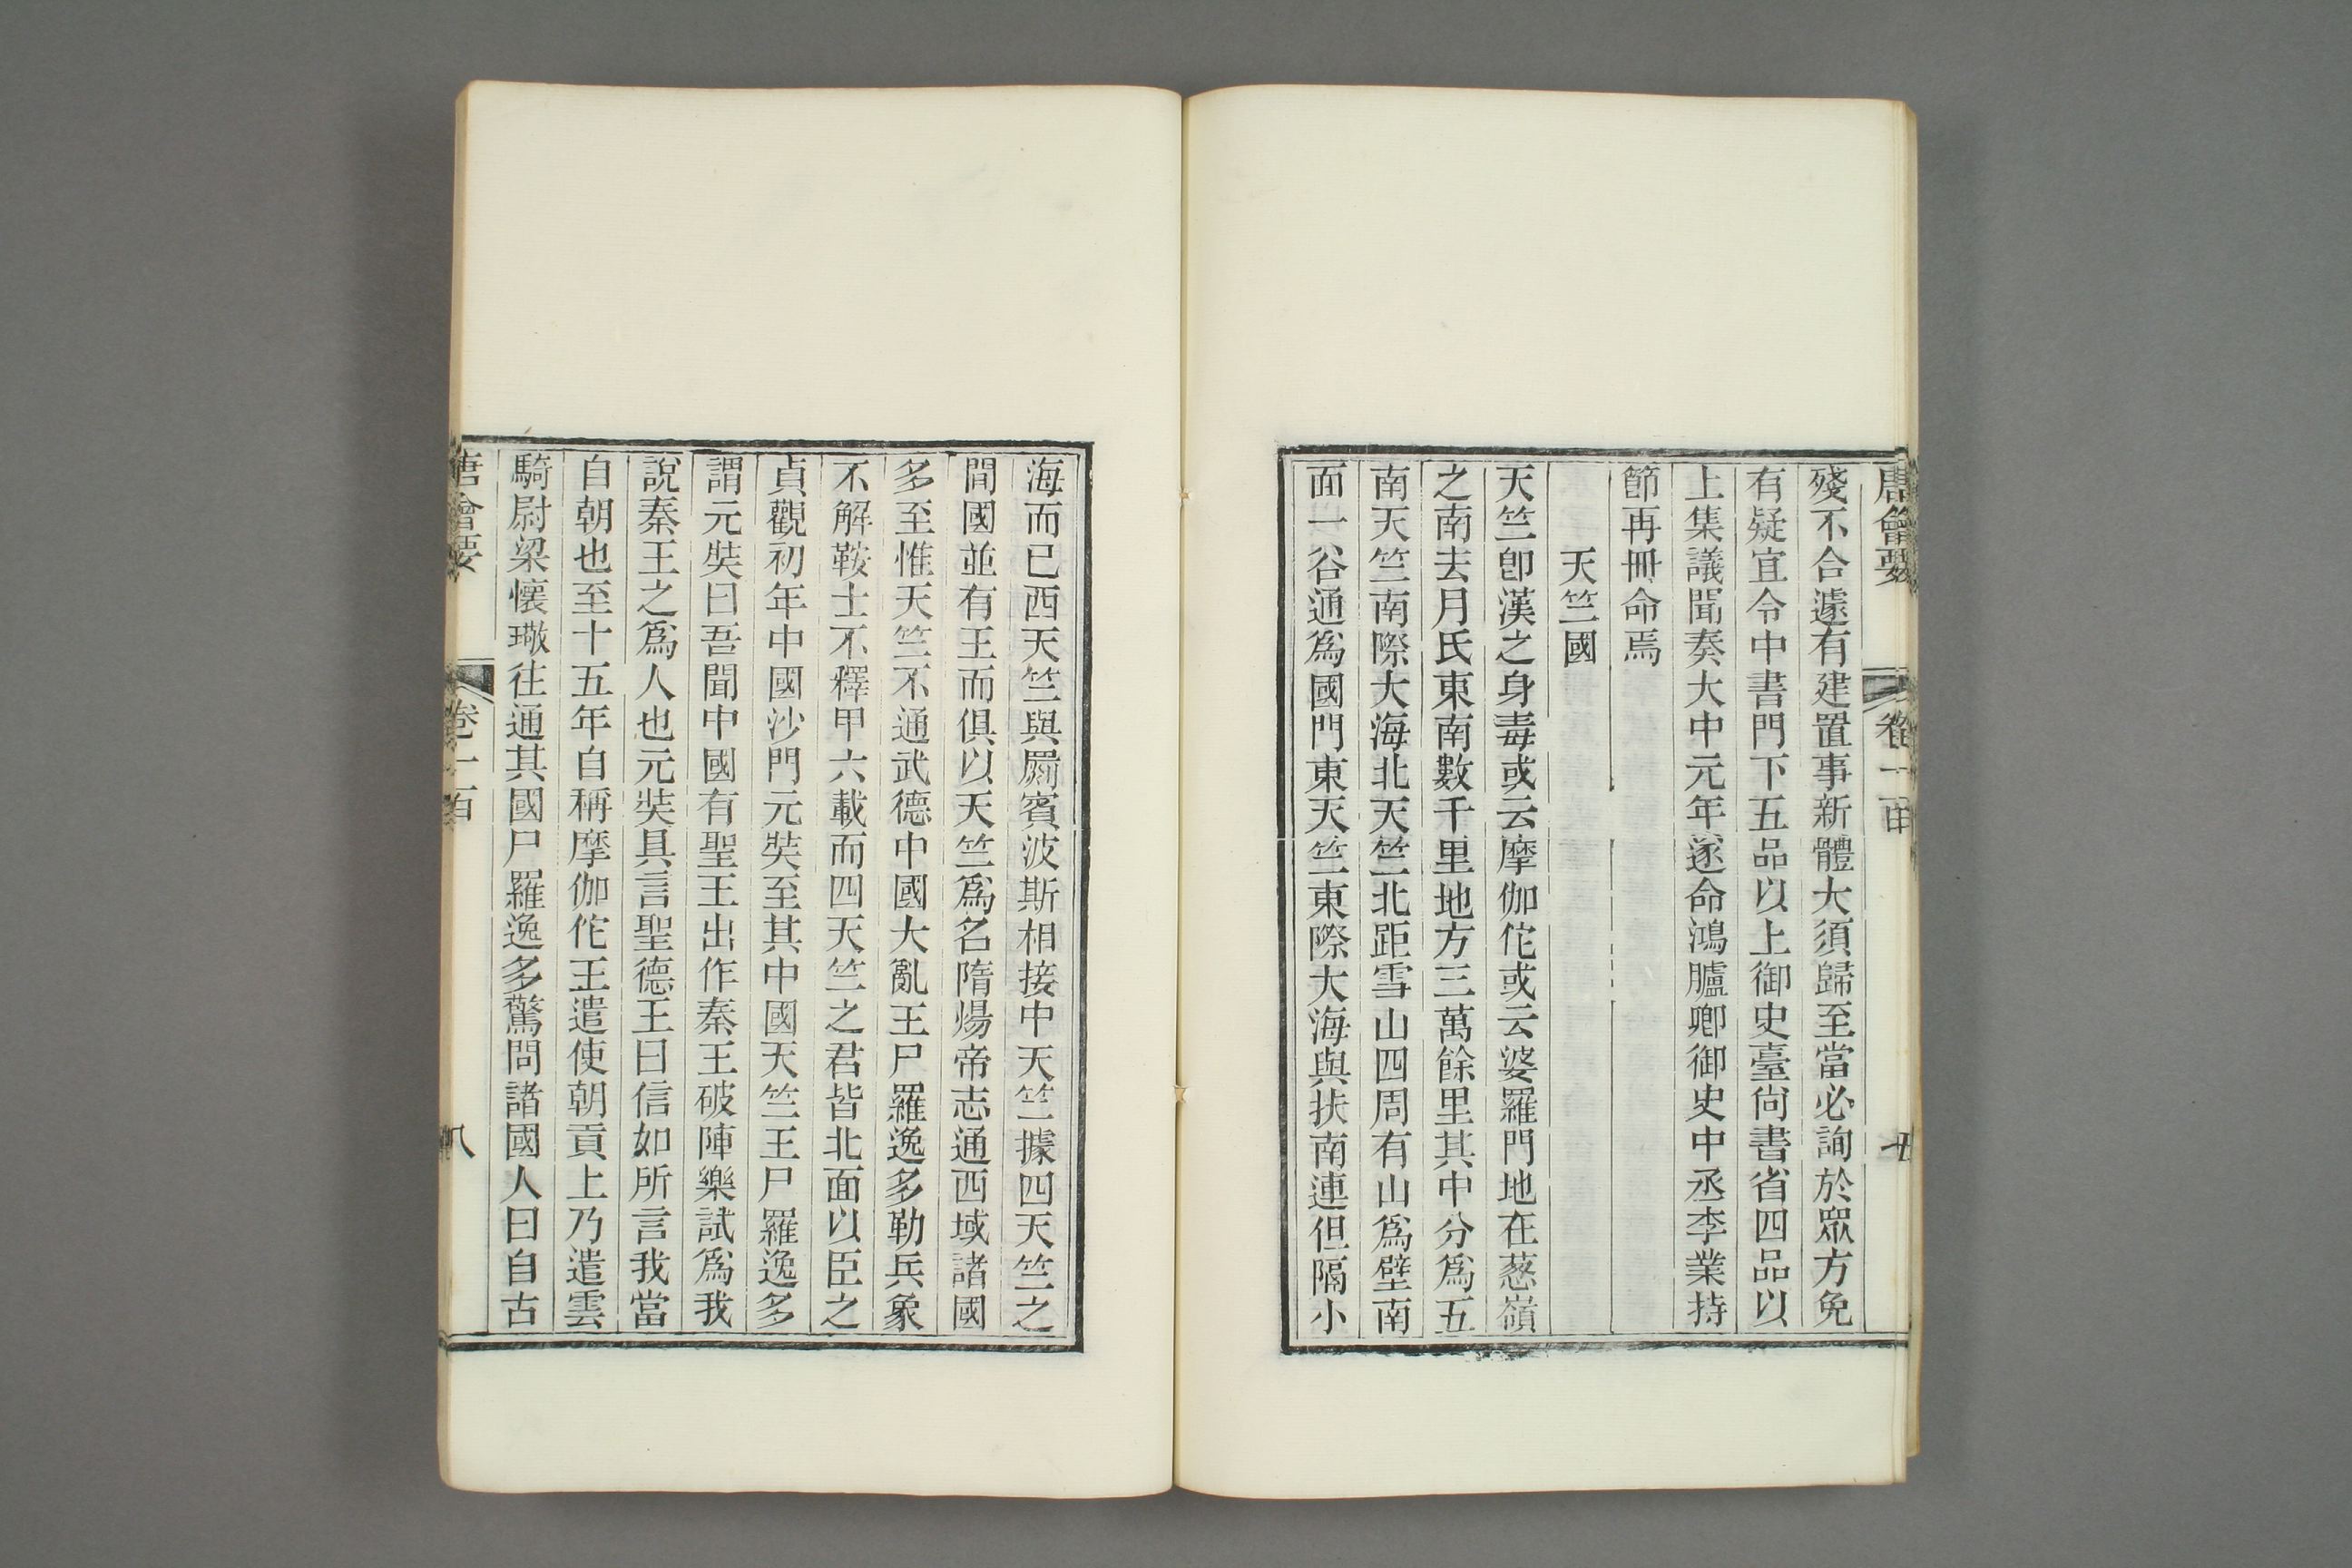 唐會要 卷一百 七
殘不合遽有建置事新體大須歸至當必詢於眾方免
有疑宜令中書門下五品以上御史臺尙書省四品以
上集議聞奏大中元年遂命鴻臚卿御史中丞李業持
節再冊命焉
天竺國
天竺卽漢之身毒或云摩伽佗或云婆羅門地在葱嶺
之南去月氏東南數千里地方三萬餘里其中分爲五
南天竺南際大海北天竺北距雪山四周有山爲壁南
面一谷通爲國門東天竺東際大海與扶南連但隔小
海而已西天竺與罽賓波斯相接中天竺據四天竺之
間國並有王而俱以天竺爲名隋煬帝志通西域諸國
多至惟天竺不通武德中國大亂王尸羅逸多勒兵象
不解鞍士不釋甲六載而四天竺之君皆北面以臣之
貞觀初年中國沙門元奘至其中國天竺王尸羅逸多
謂元奘曰吾聞中國有聖王出作秦王破陣樂試爲我
說秦王之爲人也元奘具言聖德王曰信如所言我當
自朝也至十五年自稱摩伽佗王遣使朝貢上乃遣雲
騎尉梁懷璥往通其國尸羅逸多驚問諸國人曰自古
唐會要 卷一百 八